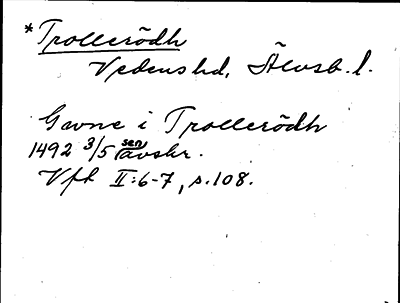 *Trollerödh
Vedens hd, Älvsb. l.
Gunne i Trollerödh
1492 3/5 sen avskr.
Vft II:6-7, s. 108.